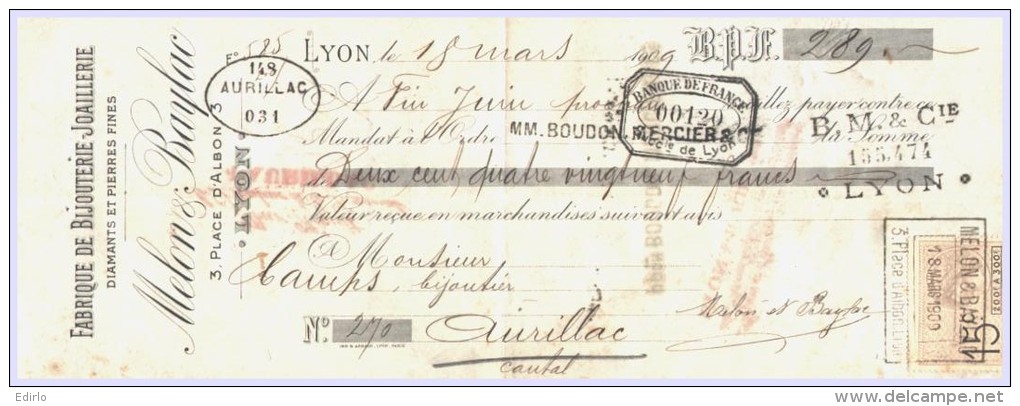 FABRIQUE DE BIJOUTERIE-JOAILLERIE
DIAMANTS ET PIERRES FINES
Melon & Baylac
3, PLACE D'ALBON 3
LYON
F° 585
148
AURILLAC
031
LYON, le 18 mars 1909 B.P.F. 289
A Fin Juin veuillez payer contre ce
BANQUE DE FRANCE
00120
Succle de Lyon
Mandat à l'Ordre la Somme
MM. BOUDON, MERCIER &
B. M. & CIE
155.474
LYON
de Deux cent quatre vingt neuf francs
Valeur reçue en marchandises suivant avis
A Monsieur
Camps, bijoutier
Melon et Baylac
N° 270
Aurillac
Cantal
MELON & BAYLAC
18 MARS 1909
3, Place d'Albon
LYON
2001 A 3001
Edirlo
delcampe.net